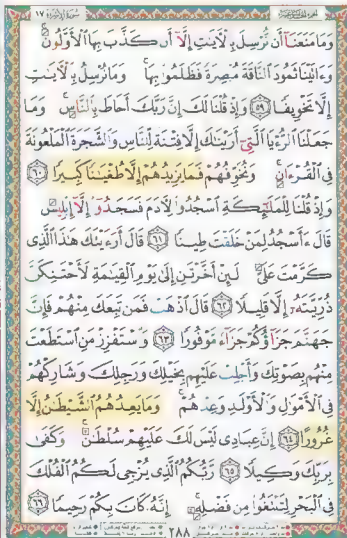 الجزء الخامس عشر سورة الإسراء ١٧
وَمَا مَنَعَنَآ أَن نُّرْسِلَ بِٱلْأَيَٰتِ إِلَّآ أَن كَذَّبَ بِهَا ٱلْأَوَّلُونَ
وَءَاتَيْنَا ثَمُودَ ٱلنَّاقَةَ مُبْصِرَةً فَظَلَمُوا۟ بِهَا وَمَا نُرْسِلُ بِٱلْأَيَٰتِ
إِلَّا تَخْوِيفًا ٥٩ وَإِذْ قُلْنَا لَكَ إِنَّ رَبَّكَ أَحَاطَ بِٱلنَّاسِ وَمَا
جَعَلْنَا ٱلرُّءْيَا ٱلَّتِىٓ أَرَيْنَٰكَ إِلَّا فِتْنَةً لِّلنَّاسِ وَٱلشَّجَرَةَ ٱلْمَلْعُونَةَ
فِى ٱلْقُرْءَانِ وَنُخَوِّفُهُمْ فَمَا يَزِيدُهُمْ إِلَّا طُغْيَٰنًا كَبِيرًا ٦٠
وَإِذْ قُلْنَا لِلْمَلَٰٓئِكَةِ ٱسْجُدُوا۟ لِأَدَمَ فَسَجَدُوٓا۟ إِلَّآ إِبْلِيسَ
قَالَ ءَأَسْجُدُ لِمَنْ خَلَقْتَ طِينًا ٦١ قَالَ أَرَءَيْتَكَ هَٰذَا ٱلَّذِى
كَرَّمْتَ عَلَىَّ لَئِنْ أَخَّرْتَنِ إِلَىٰ يَوْمِ ٱلْقِيَٰمَةِ لَأَحْتَنِكَنَّ
ذُرِّيَّتَهُۥٓ إِلَّا قَلِيلًا ٦٢ قَالَ ٱذْهَبْ فَمَن تَبِعَكَ مِنْهُمْ فَإِنَّ
جَهَنَّمَ جَزَآؤُكُمْ جَزَآءً مَّوْفُورًا ٦٣ وَٱسْتَفْزِزْ مَنِ ٱسْتَطَعْتَ
مِنْهُم بِصَوْتِكَ وَأَجْلِبْ عَلَيْهِم بِخَيْلِكَ وَرَجِلِكَ وَشَارِكْهُمْ
فِى ٱلْأَمْوَٰلِ وَٱلْأَوْلَٰدِ وَعِدْهُمْ وَمَا يَعِدُهُمُ ٱلشَّيْطَٰنُ إِلَّا
غُرُورًا ٦٤ إِنَّ عِبَادِى لَيْسَ لَكَ عَلَيْهِمْ سُلْطَٰنٌ وَكَفَىٰ
بِرَبِّكَ وَكِيلًا ٦٥ رَّبُّكُمُ ٱلَّذِى يُزْجِى لَكُمُ ٱلْفُلْكَ
فِى ٱلْبَحْرِ لِتَبْتَغُوا۟ مِن فَضْلِهِۦٓ إِنَّهُۥ كَانَ بِكُمْ رَحِيمًا ٦٦
٢٨٨